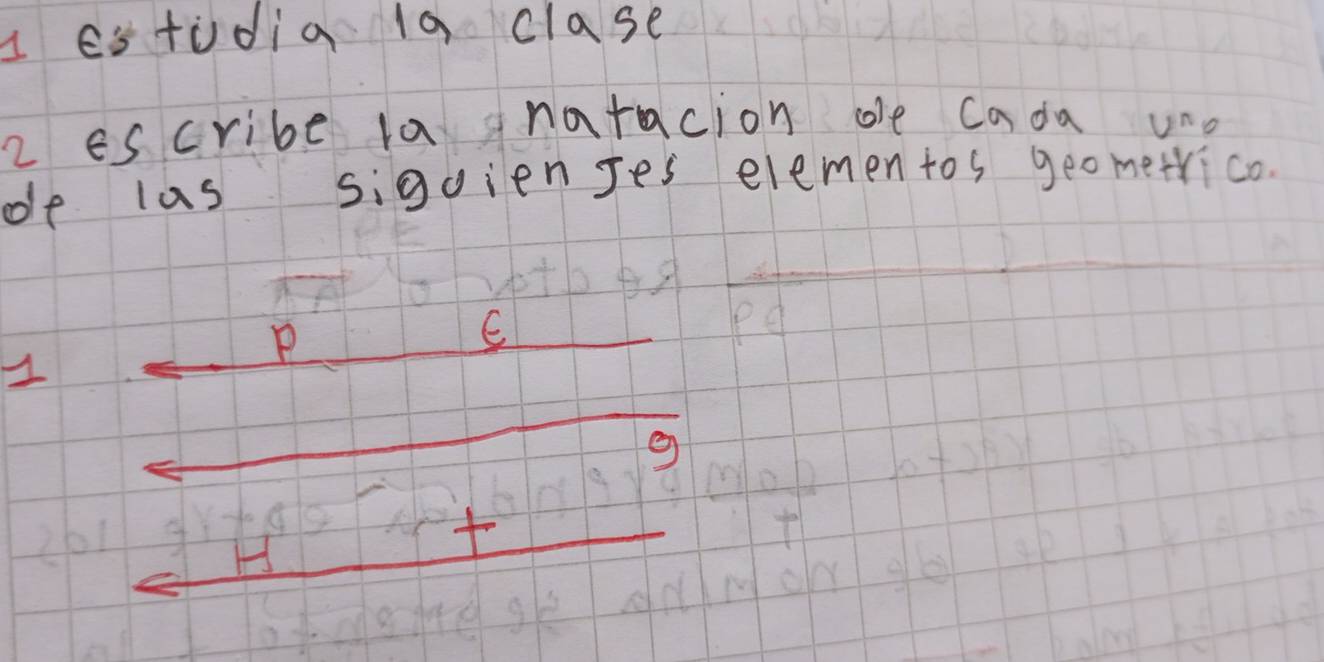 1 estudia la clase
2 escribe la natacion de cada uno
de las siguienTes elementos geometrico.
1 P E
g
H t